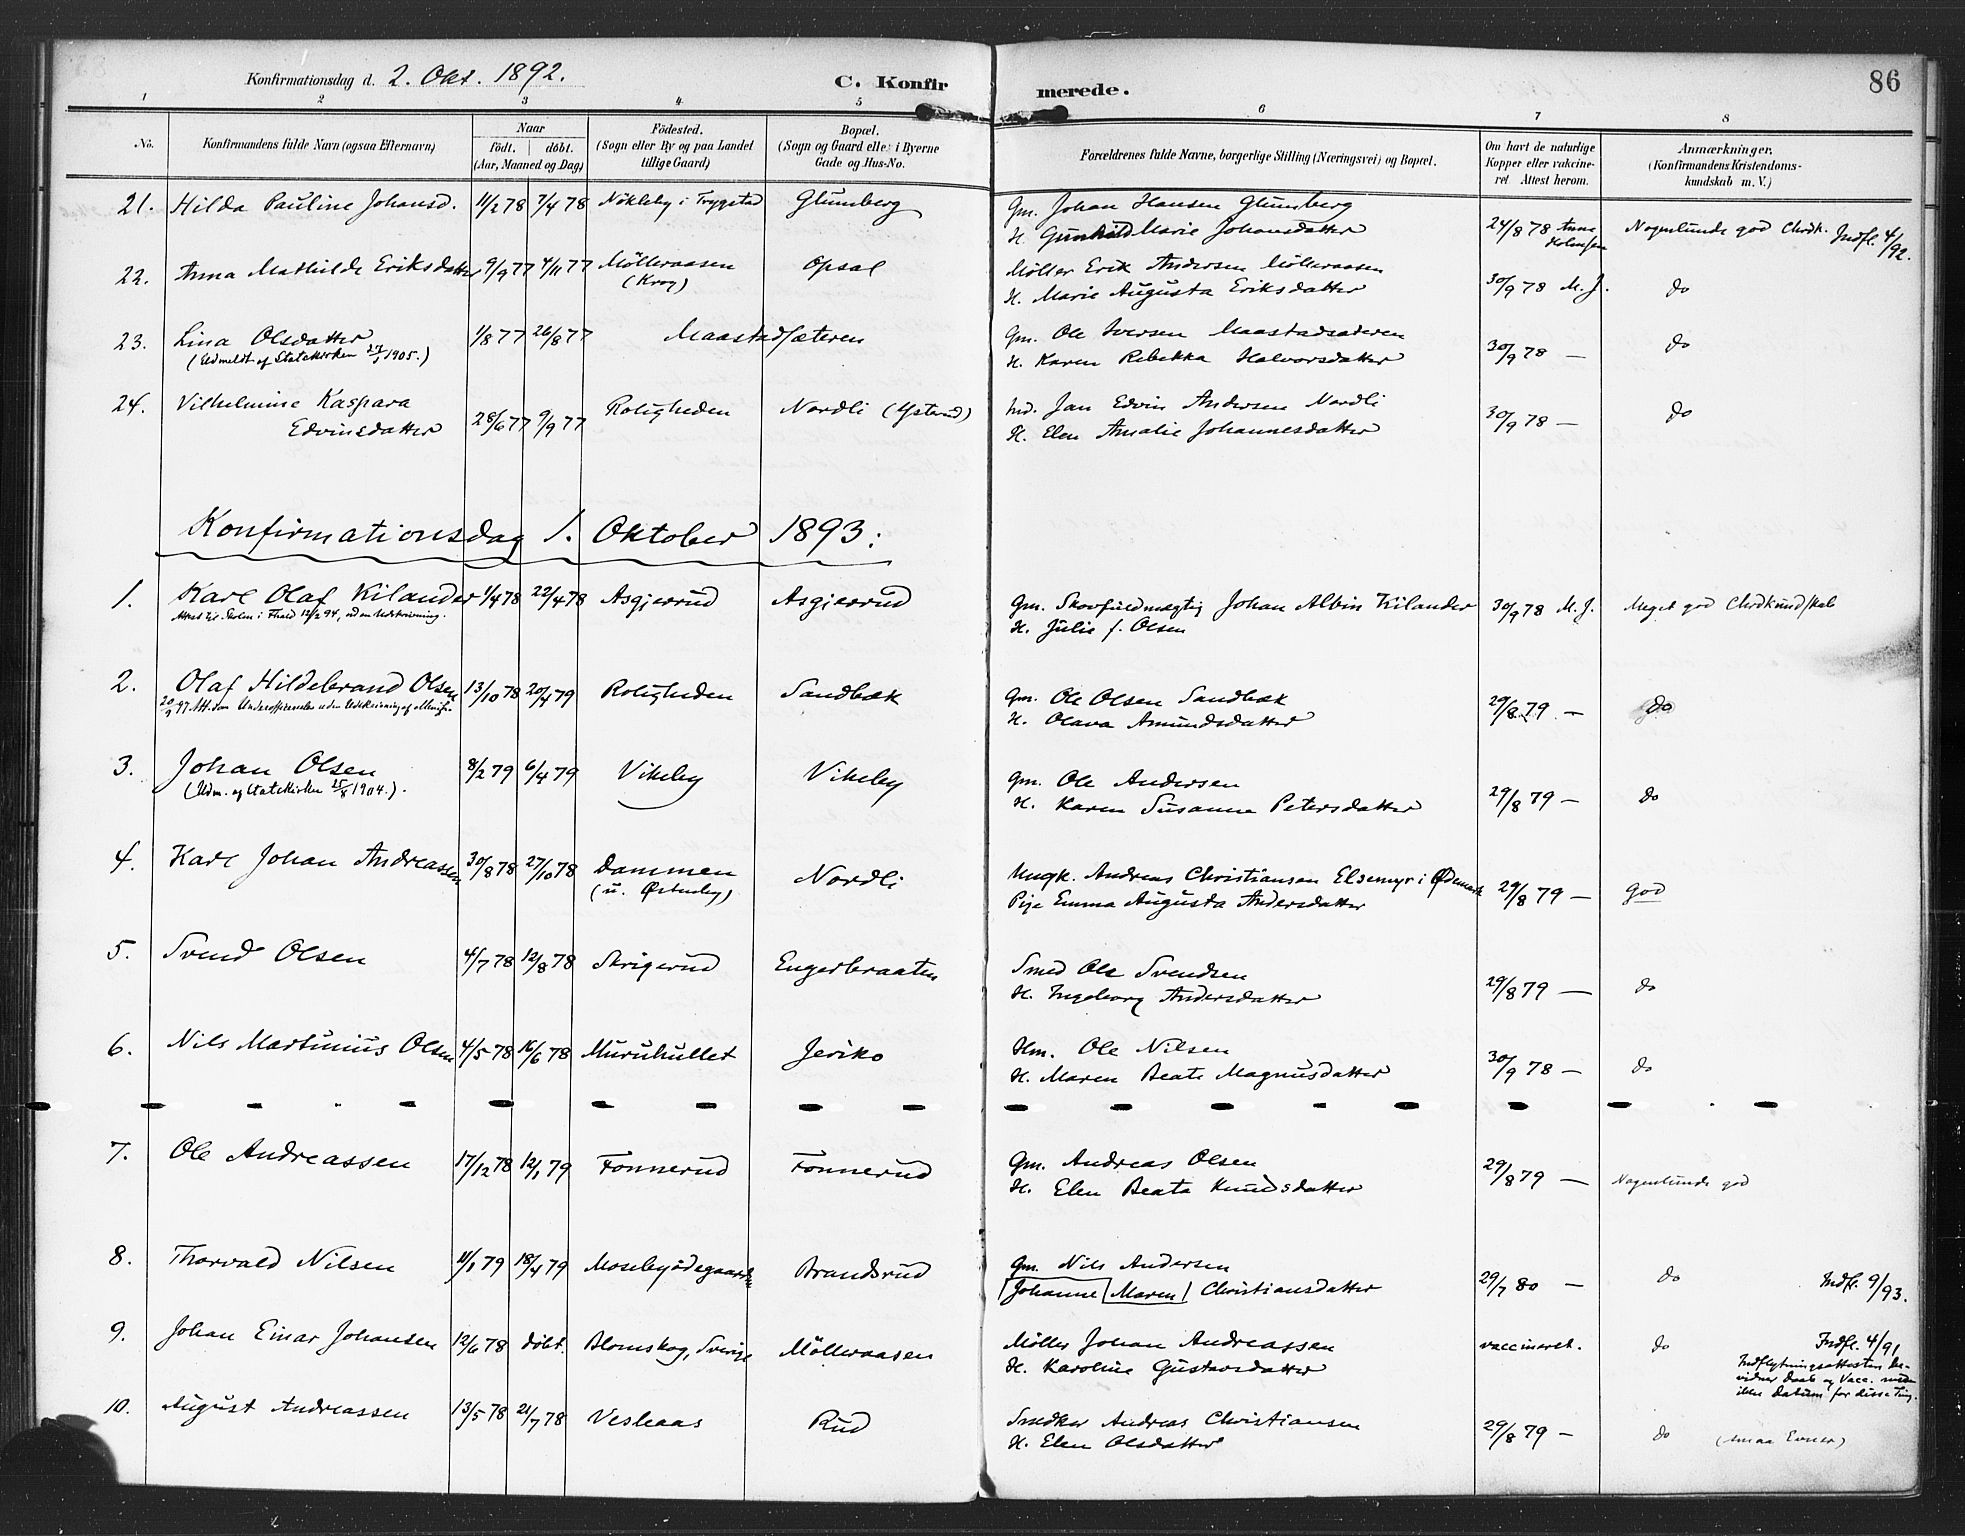 Konfirmationsdag d. 2. Okt. 1892. C. Konfirmerede. 86
1 2 3 4 5 6 7 8
No. Konfirmandens fulde Navn (ogsaa Efternavn) Naar født. døbt. (Aar, Maaned og Dag) Födested. (Sogn eller By og paa Landet tillige Gaard) Bopæl. (Sogn og Gaard eller i Byerne Gade og Hus-No. Forældrenes fulde Navne, borgerlige Stilling (Næringsvei) og Bopæl. Om havt de naturlige Kopper eller vakcineret Attest herom. Anmærkninger, (Konfirmandens Kristendomskundskab m. V.)
21. Hilda Pauline Johansd. 11/2 78 7/4 78 Nökleby i Trygstad Glumberg Gm. Johan Hansen Glumberg 24/8 78 Anna Holmsen Nogenlunde god Chrdk. Indfl. 4/92.
H. Gunhild Marie Johansdatter
22. Anna Mathilde Eriksdatter 9/9 77 4/11 77 Mölleraasen (Krog) Opsal Möller Erik Andersen Mölleraasen 30/9 78 M. J. do
H. Marie Augusta Eriksdatter
23. Lina Olsdatter 1/8 77 26/8 77 Maastadsæteren Gm. Ole Iversen Maastadsæderen 30/9 78 — do
(Udmeldt af Statskirken 1905.) H. Karen Rebekka Halvorsdatter
24. Vilhelmine Kaspara Edvinsdatter 28/6 77 9/9 77 Roligheden Nordli (Ystrud) Ind. Jan Edvin Andersen Nordli 30/9 78 — do
H. Elen Amalie Johannesdatter
Konfirmationsdag 1. Oktober 1893:
1. Karl Olaf Kilander 1/4 78 22/4 78 Asgjerrud Asgjerrud Gm. Skovfuldmægtig Johan Albin Kilander 30/9 78 M. J. Meget god Chrdkundskab
12/2 94, uden Udskrivning. H. Julie f. Olsen
2. Olaf Hildebrand Olsen 13/10 78 20/4 79 Roligheden Sandbæk Gm. Ole Olsen Sandbæk 29/8 79. — do
H. Olava Amundsdatter
3. Johan Olsen 8/2 79 6/4 79 Vikeby Vikeby Gm. Ole Andersen 29/8 79 — do
(Udm. af Statskirken 25/8 1904.). H. Karen Susanne Petersdatter
4. Karl Johan Andreassen 30/8 78 27/10 78 Dammen (u. Østenby) Nordli Ungk. Andreas Christiansen Elsemyr i Ødemark 29/8 79 — god
Pige Emma Augusta Andersdatter
5. Svend Olsen 4/7 78 12/8 78 Skrigerud Engerbraaten Smed Ole Svendsen 29/8 79 — do
H. Ingeborg Andersdatter
6. Nils Martinius Olsen 4/5 78 16/6 78 Muruhullet Jeriko Hm. Ole Nilsen 30/9 78 — do
H. Maren Beate Magnusdatter
7. Ole Andreassen 17/12 78 12/1 79 Fonnerud Fonnerud Gm. Andreas Olsen 29/8 79 — Nogenlunde god
H. Elen Beata Knudsdatter
8. Thorvald Nilsen 11/1 79 18/4 79 Mosebyödegaarden Brandsrud Gm. Nils Andersen 29/7 80 — do Indfl. 9/93.
Johanne Maren Christiansdatter
9. Johan Einar Johansen 12/6 78 döbt. Blomskog, Sverige Mölleraasen Möller Johan Andreassen vaccineret. do Indfl. 4/91
H. Karoline Gustavsdatter Indflytningsattesten bevidner Daab og Vacc. men ikke Datum for disse Ting.
10. August Andreassen 13/5 78 21/7 78 Vesleaas Rud Snedker Andreas Christiansen 29/8 79 — do (smaa Evner)
H. Elen Olsdatter